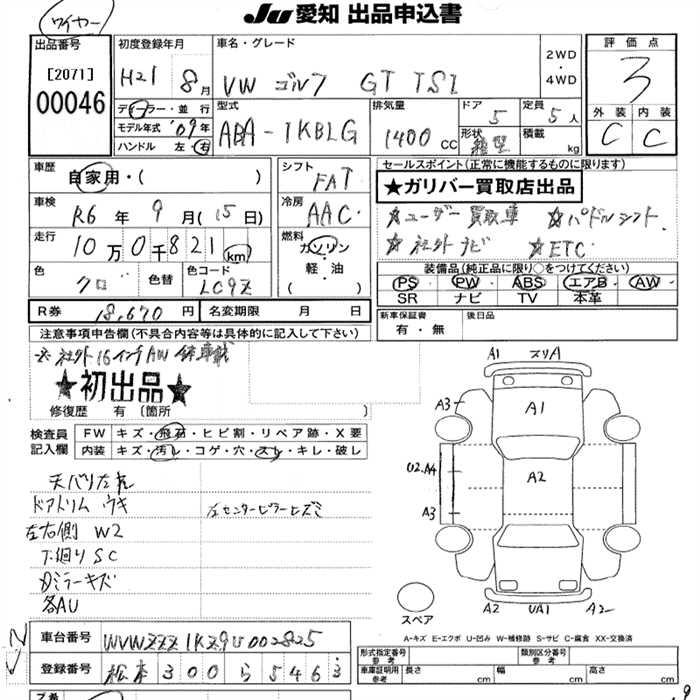 ワイヤー
JU 愛知 出品申込書
出品番号
[2071]
00046
初度登録年月
H21 8月
ディーラー・並行
モデル年式 '09年
ハンドル 左・右
車名・グレード
VW ゴルフ GT TSI
2WD
・
4WD
型式
ABA-1KBLG
排気量
1400 CC
ドア
5
形状
定員
5人
積載
kg
評価点
3
外装 内装
C C
車歴
自家用・( )
車検
R6年 9月(15日)
走行
10万0千821km
色
クロ
色替
色コード
LC9Z
R券 18,670円
名変期限 月 日
シフト
FAT
冷房
AAC
燃料
ガソリン
・
軽・油
( )
セールスポイント(正常に機能するものに限ります)
★ガリバー買取店出品
☆ユーザー買取車 ☆パドルシフト
☆社外ナビ ☆ETC
装備品(純正品に限り○をつけてください)
PS PW ABS エアB AW
SR ナビ TV 本革
新車保証書
有・無
後日品
注意事項申告欄(不具合内容等は具体的に記入して下さい)
※社外16インチAW
★初出品★
修復歴 有 〔箇所 〕
検査員
記入欄
FW キズ・飛石・ヒビ割・リペア跡・X要
内装 キズ・汚レ・コゲ・穴・スレ・キレ・破レ
天バリたれ
ドアトリム ウキ
左センターピラーヒズミ
左右側 W2
下廻りSC
ミラーキズ
各AU
A1 スリA
A3
A1
U2.A4
A2
A3
A2 UA1 A2
スペア
A-キズ E-エクボ U-凹み W-補修跡 S-サビ C-腐食 XX-交換済
車台番号 WVWZZZ1KZ9U002825
登録番号 松本 300 ら 5463
形式指定番号
参考
類別区分番号
参考
車庫証明用
参考
長さ cm 幅 cm 高さ cm